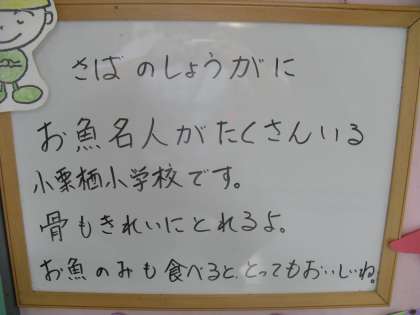 さばのしょうがに
お魚名人がたくさんいる
小栗栖小学校です。
骨もきれいにとれるよ。
お魚のみも食べると、とってもおいしいね。